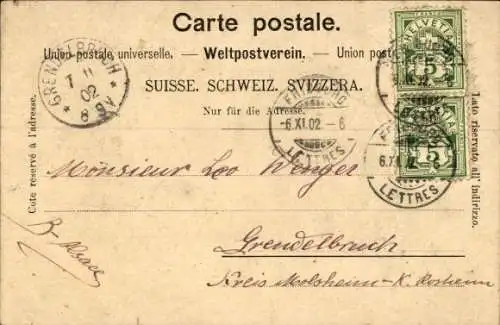 Carte postale.
Union postale universelle. — Weltpostverein. — Union post
SUISSE. SCHWEIZ. SVIZZERA.
Nur für die Adresse.
Côté réservé à l'adresse.
Lato riservato all' indirizzo.
GRENDELBRUCH
7 11
02
8-9V
HELVETIA
5
5
FRIBOURG
-6.XI.02-6
LETTRES
LETTRES
Monsieur Leo Wenger
Grendelbruch
Kreis Molsheim - K. Rosheim